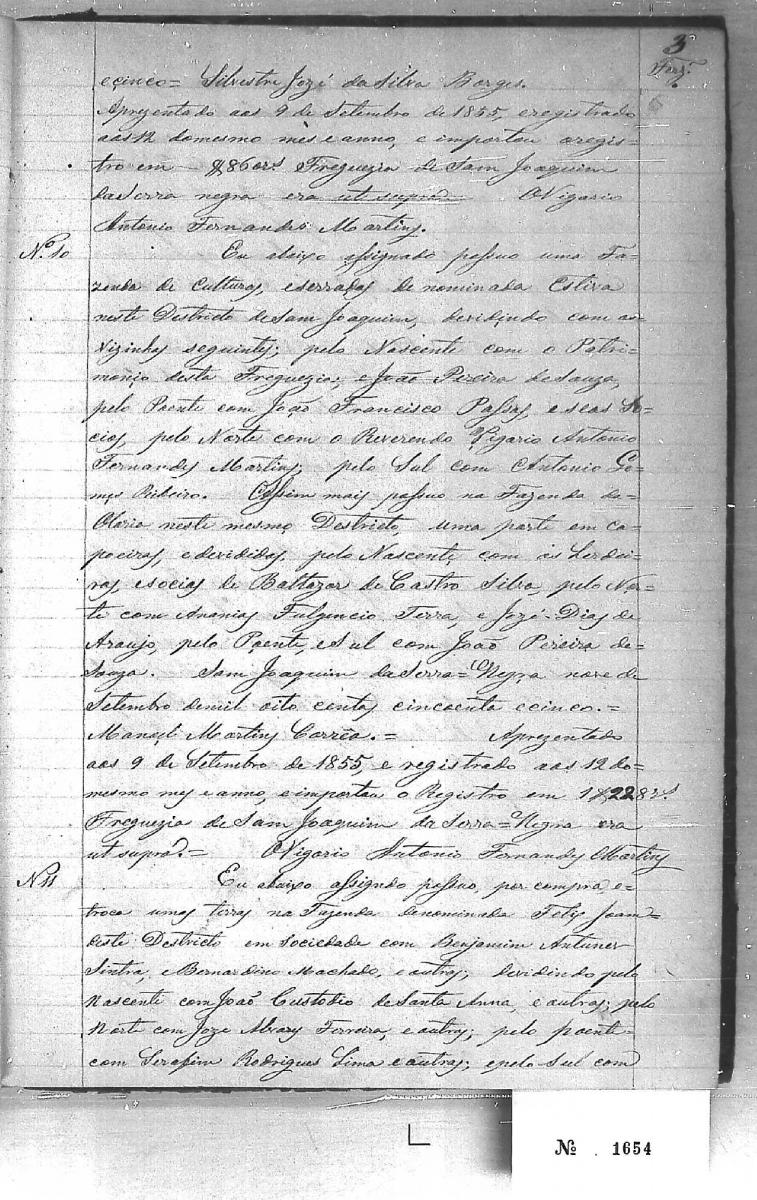 3
ecinco = Silvestre Jozé da Silva Borges.
Aprezentado aos 9 de Setembro de 1855, eregistrado
aos 12 domesmo mês e anno, e importou oregis-
tro em $860rs. Freguezia de Sam Joaquim
da Serra negra era ut supra OVigario
Antonio Fernandes Martins.
Nº 10
Eu abaixo assignado possuo uma Fa-
zenda de Culturas, eserrados denominada Estiva
neste Destricto de Sam Joaquim, devidindo com os
Vizinhos seguintes; pelo Nascente com o Patri-
monio desta Freguezia; e João Pereira de Souza,
pelo Poente com João Francisco Passos, e seos So-
cios, pelo Norte com o Reverendo Vigario Antonio
Fernandes Martins; pelo Sul com Antonio Go-
mes Ribeiro. Assim mais possuo na Fazenda da
Olaria neste mesmo Destricto, uma parte em ca-
poeiras, edevididas, pelo Nascente com os Herdei-
ros, esocios de Baltazar de Castro Silva, pelo Nor-
te com Ananias Fulgencio Terra, e Jozé Dias de
Araujo, pelo Poente, e Sul com João Pereira de
Souza. Sam Joaquim da Serra = Negra nove de
Setembro demil oito centos cincoenta ecinco. =
Manoel Martins Corrêa. = Aprezentado
aos 9 de Setembro de 1855, e registrado aos 12 do-
mesmo mes e anno, e importou o Registro em 1$228rs.
Freguezia de Sam Joaquim da Serra = Negra era
ut supra. = OVigario Antonio Fernandes Martins
N 11
Eu abaixo assigndo possuo, por compra e
troca umas terras na Fazenda denominada Felis Joam =
deste Destricto em Sociedade com Benjamim Antunes
Sintra, e Bernardino Machado, e outros; devidindo pelo
Nascente com João Custodio de Santa Anna, e outros; pelo
Norte com Joze Alvares Ferreira, e outros; pelo poente
com Serafim Rodrigues Lima e outros; epelo Sul com
Nº 1654